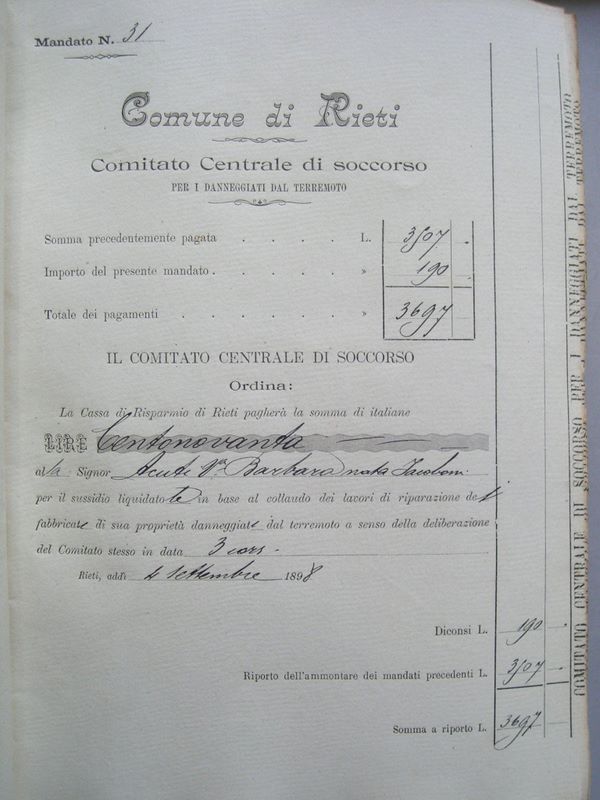 Mandato N. 31
Comune di Rieti
Comitato Centrale di soccorso
PER I DANNEGGIATI DAL TERREMOTO
Somma precedentemente pagata . . . . L. 3507 .
Importo del presente mandato . . . . . » 190 .
Totale dei pagamenti . . . . . . » 3697
IL COMITATO CENTRALE DI SOCCORSO
Ordina:
La Cassa di Risparmio di Rieti pagherà la somma di italiane
LIRE Centonovanta
al la Signor Acuti Va. Barbara nata Jacoboni
per il sussidio liquidato in base al collaudo dei lavori di riparazione de
fabbricat di sua proprietà danneggiat dal terremoto a senso della deliberazione
del Comitato stesso in data 3 cors.
Rieti, addì 4 Settembre 1898
Diconsi L. 190
Riporto dell'ammontare dei mandati precedenti L. 3507
Somma a riporto L. 3697
COMITATO CENTRALE DI SOCCORSO PER I DANNEGGIATI DAL TERREMOTO